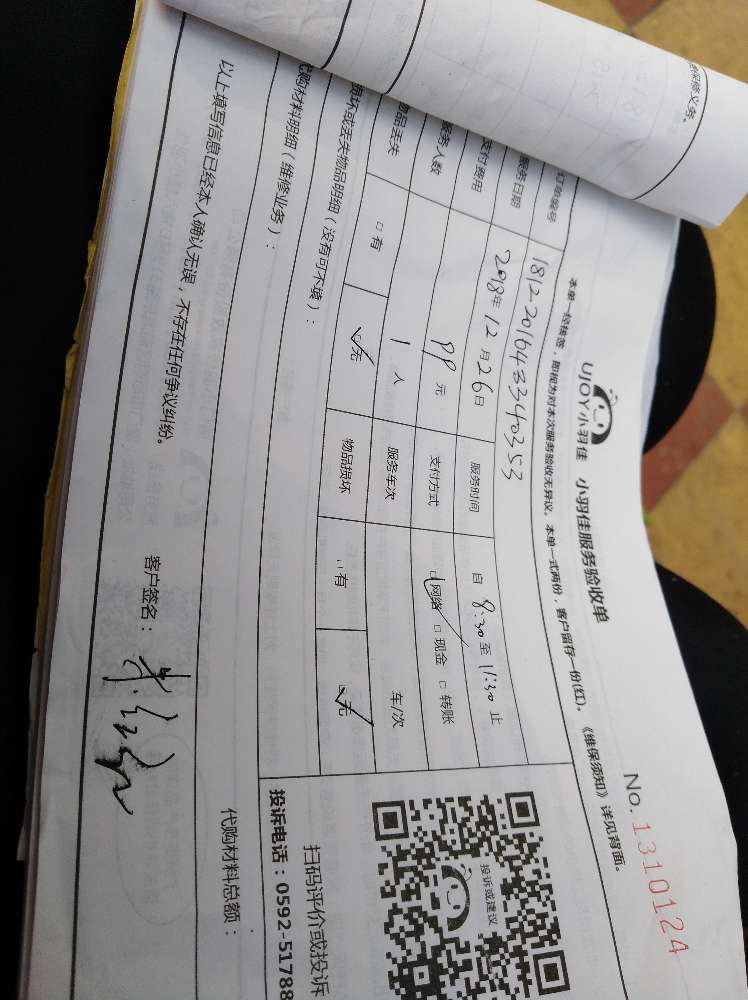 保修义务。
UJOY小羽佳 小羽佳服务验收单
No. 1310124
本单一经核签，即视为对本次服务验收无异议。本单一式两份，客户留存一份(红)，《维保须知》详见背面。
订单编号 1812-2016433340353
服务日期 2018年12月26日 服务时间 自 8:30 至 11:30 止
支付费用 99 元 支付方式 ☑网络 □现金 □转账
服务人数 1 人 服务车次 车/次
物品丢失 □有 ☑无 物品损坏 □有 ☑无
损坏或丢失物品明细（没有可不填）：
代购材料明细（维修业务）：
代购材料总额：
以上填写信息已经本人确认无误，不存在任何争议纠纷。
客户签名：
投诉或建议
扫码评价或投诉
投诉电话：0592-51788